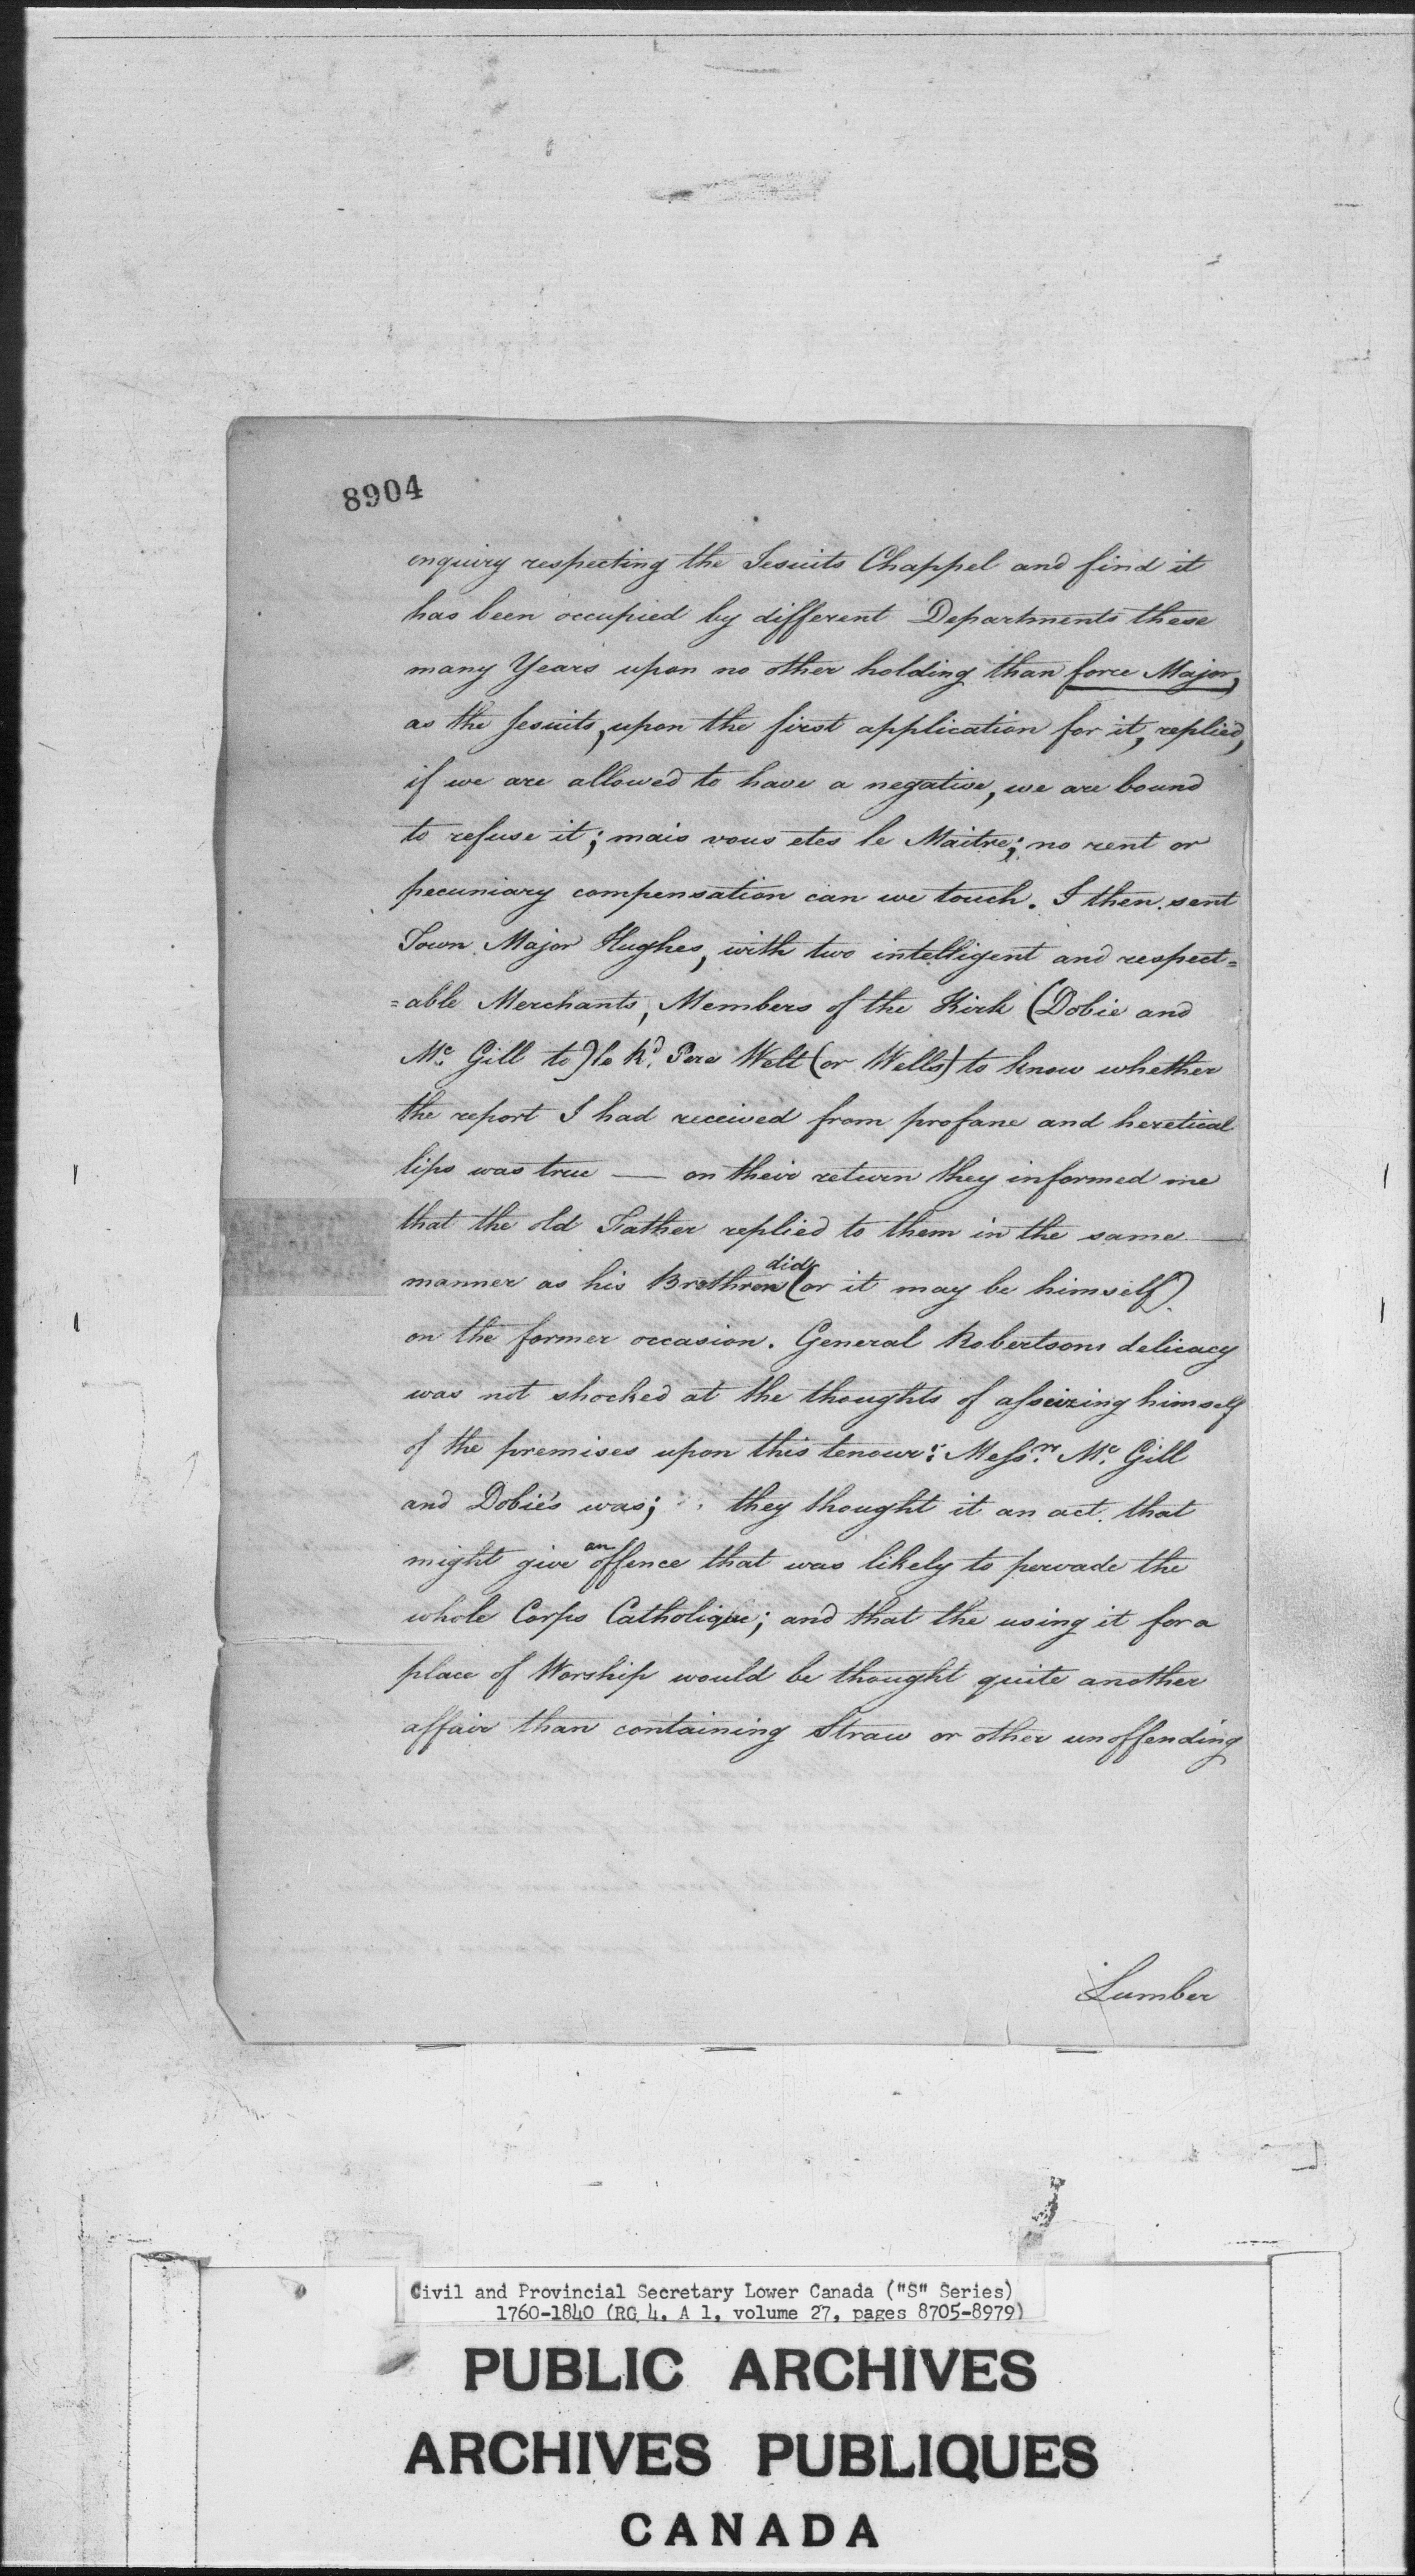 8904
enquiry respecting the Jesuits Chappel and find it
has been occupied by different Departments these
many Years upon no other holding than force Major,
as the Jesuits, upon the first application for it, replied,
if we are allowed to have a negative, we are bound
to refuse it; mais vous etes le Maitre; no rent or
pecuniary compensation can we touch. I then sent
Town Major Hughes, with two intelligent and respect=
=able Merchants, Members of the Kirk (Dobie and
Mc. Gill to) le Rd. Pere Welt (or Wells) to know whether
the report I had received from profane and heretical
lips was true — on their return they informed me
that the old Father replied to them in the same
manner as his Brethren did (or it may be himself)
on the former occasion. General Robertsons delicacy
was not shocked at the thoughts of asseizing himself
of the premises upon this tenour: Messrs. Mc. Gill
and Dobie's was; they thought it an act that
might give an offence that was likely to pervade the
whole Corps Catholique; and that the using it for a
place of Worship would be thought quite another
affair than containing Straw or other unoffending
Lumber
Civil and Provincial Secretary Lower Canada ("S" Series)
1760-1840 (RG 4, A 1, volume 27, pages 8705-8979)
PUBLIC ARCHIVES
ARCHIVES PUBLIQUES
CANADA